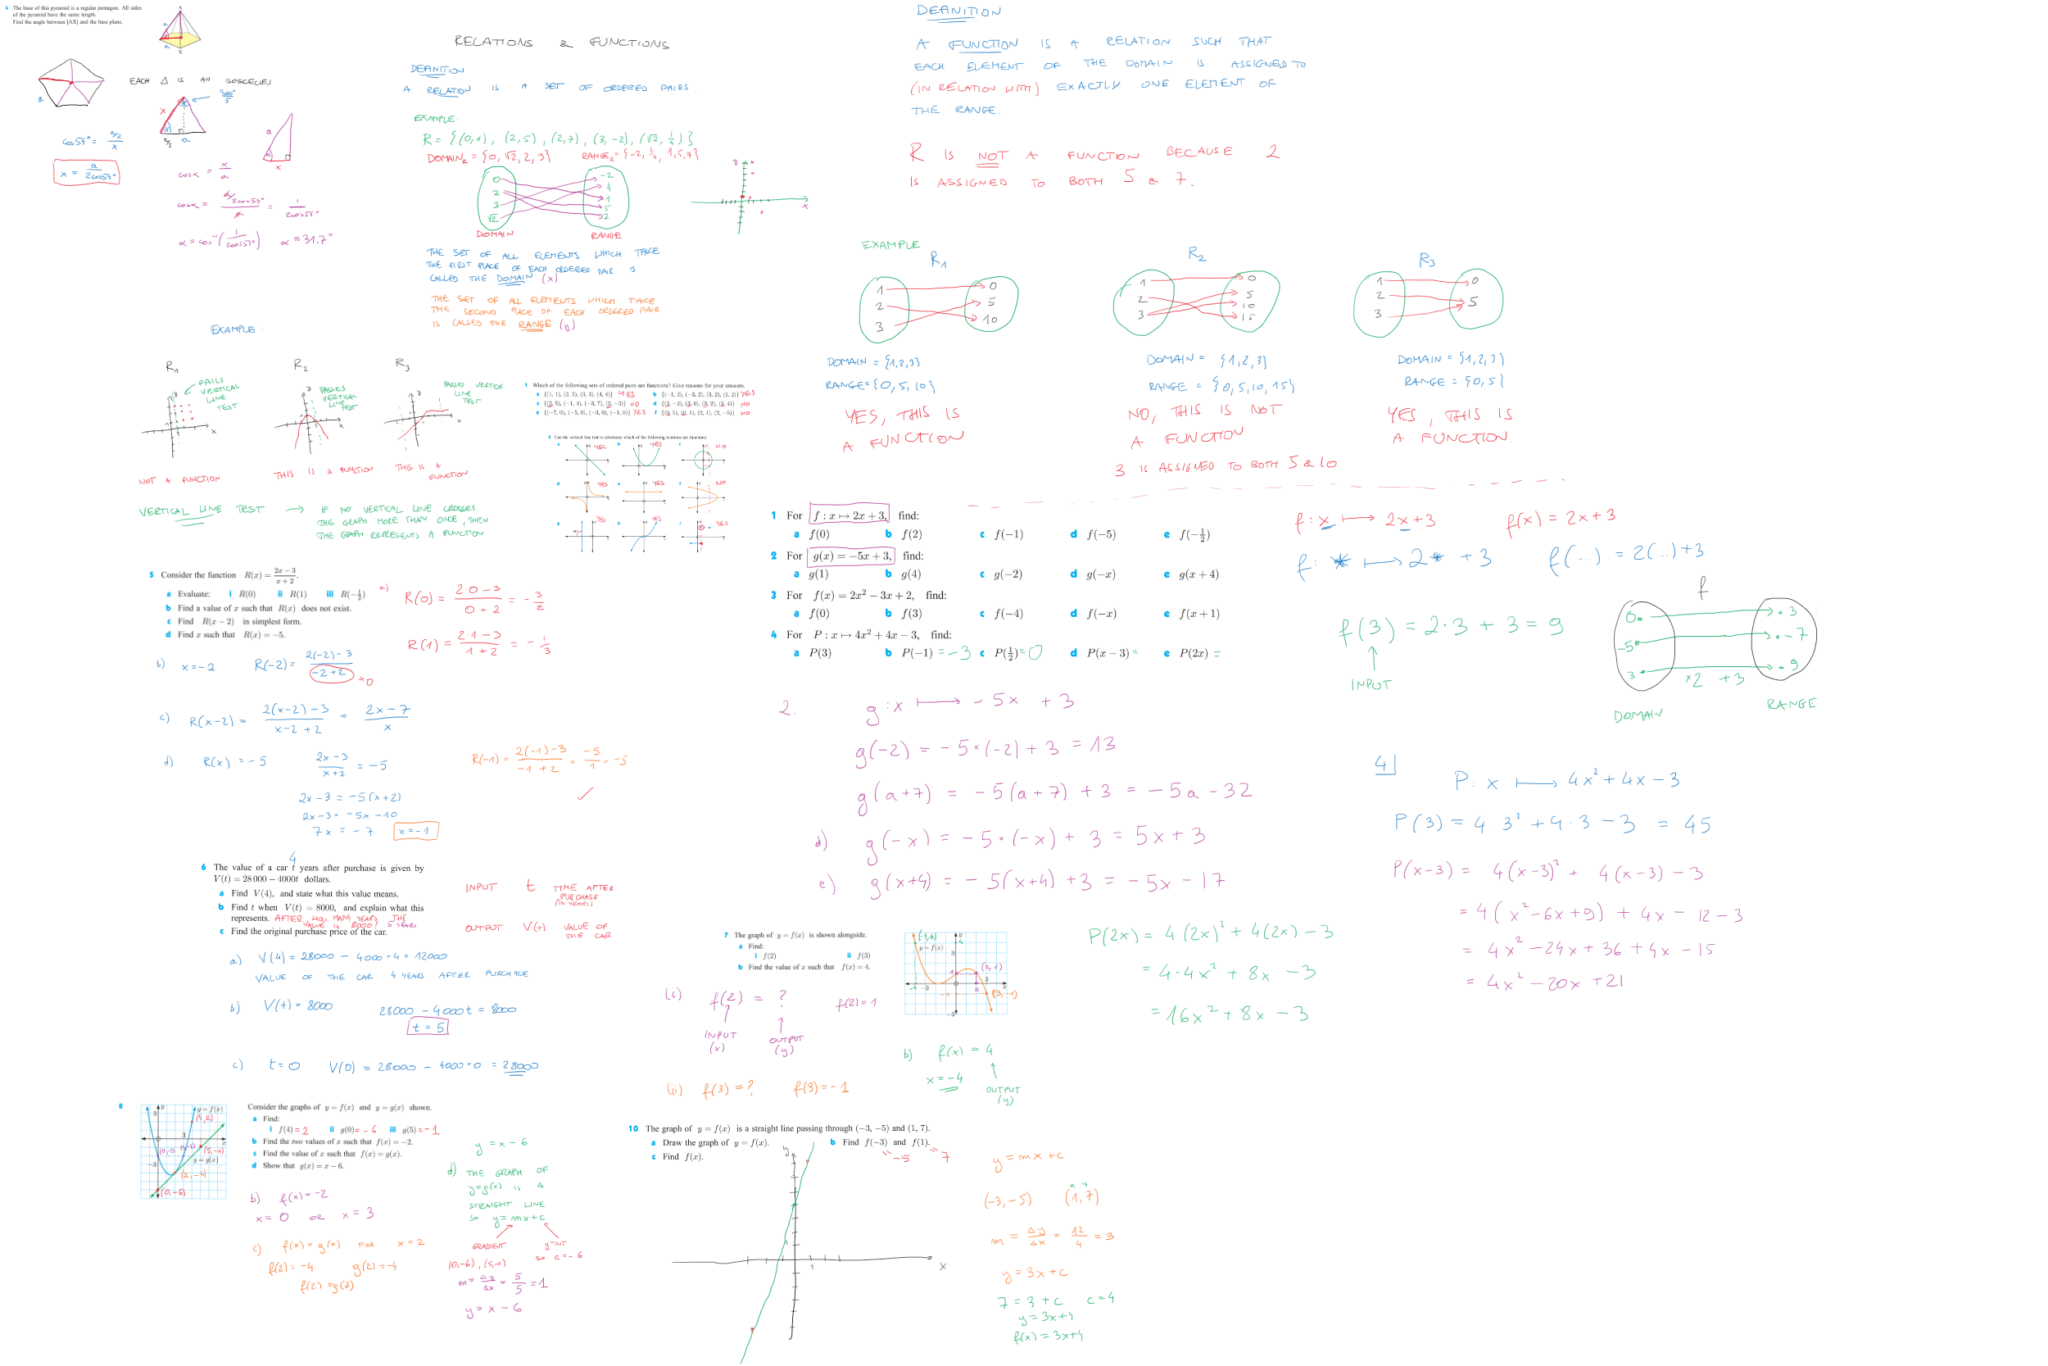 4 The base of this pyramid is a regular pentagon. All sides
of the pyramid have the same length.
Find the angle between [AX] and the base plane.
EACH Δ IS AN ISOSCELES
360°/5
cos54° = (a/2)/x
x = a/(2cos54°)
cosα = x/a
cosα = (a/(2cos54°))/a = 1/(2cos54°)
α = cos⁻¹(1/(2cos54°)) α ≈ 31.7°
RELATIONS & FUNCTIONS
DEFINITION
A RELATION IS A SET OF ORDERED PAIRS
EXAMPLE:
R = {(0,1), (2,5), (2,7), (3,-2), (√2, 1/2)}
DOMAIN_R = {0, √2, 2, 3}
DOMAIN
RANGE
THE SET OF ALL ELEMENTS WHICH TAKE
THE FIRST PLACE OF EACH ORDERED PAIR IS
CALLED THE DOMAIN (x)
THE SET OF ALL ELEMENTS WHICH TAKE
THE SECOND PLACE OF EACH ORDERED PAIR
IS CALLED THE RANGE (y)
DEFINITION
A FUNCTION IS A RELATION SUCH THAT
EACH ELEMENT OF THE DOMAIN IS ASSIGNED TO
(IN RELATION WITH) EXACTLY ONE ELEMENT OF
THE RANGE.
R IS NOT A FUNCTION BECAUSE 2
IS ASSIGNED TO BOTH 5 & 7.
EXAMPLE
R1
1 2 3
0 5 10
DOMAIN = {1,2,3}
RANGE = {0, 5, 10}
YES, THIS IS
A FUNCTION
R2
1 2 3
0 5 10 15
DOMAIN = {1,2,3}
RANGE = {0,5,10,15}
NO, THIS IS NOT
A FUNCTION
3 IS ASSIGNED TO BOTH 5 & 10
R3
1 2 3
0 5
DOMAIN = {1,2,3}
RANGE = {0,5}
YES, THIS IS
A FUNCTION
EXAMPLE:
R1
FAILS
VERTICAL
LINE
TEST
NOT A FUNCTION
R2
PASSES
VERTICAL
LINE
TEST
THIS IS A FUNCTION
R3
LINE
TEST
THIS IS A
FUNCTION
VERTICAL LINE TEST → IF NO VERTICAL LINE CROSSES
THE GRAPH MORE THAN ONCE, THEN
THE GRAPH REPRESENTS A FUNCTION
1 Which of the following sets of ordered pairs are functions? Give reasons for your answers.
a {(1, 1), (2, 2), (3, 3), (4, 4)} YES
b {(-1, 2), (-3, 2), (3, 2), (1, 2)} YES
NO
NO
e {(-7, 0), (-5, 0), (-3, 0), (-1, 0)} YES
NO
Use the vertical line test to determine which of the following relations are functions:
YES YES NO
YES YES NO
YES YES YES
5 Consider the function R(x) = (2x − 3)/(x + 2).
a Evaluate: i R(0) ii R(1) iii R(−1/2)
b Find a value of x such that R(x) does not exist.
c Find R(x − 2) in simplest form.
d Find x such that R(x) = −5.
a)
R(0) = (2·0−3)/(0+2) = −3/2
R(1) = (2·1−3)/(1+2) = −1/3
b) x = −2 R(−2) = (2(−2)−3)/(−2+2) =0
c) R(x−2) = (2(x−2)−3)/(x−2+2) = (2x−7)/x
d) R(x) = −5 (2x−3)/(x+2) = −5
2x−3 = −5(x+2)
2x−3 = −5x−10
7x = −7 x = −1
R(−1) = (2(−1)−3)/(−1+2) = −5/1 = −5
✓
4
6 The value of a car t years after purchase is given by
V(t) = 28 000 − 4000t dollars.
a Find V(4), and state what this value means.
b Find t when V(t) = 8000, and explain what this
represents. AFTER HOW MANY YEARS THE
VALUE IS 8000? 5 YEARS
c Find the original purchase price of the car.
INPUT t TIME AFTER
PURCHASE
(IN YEARS)
OUTPUT V(t) VALUE OF
THE CAR
a) V(4) = 28000 − 4000·4 = 12000
VALUE OF THE CAR 4 YEARS AFTER PURCHASE
b) V(t) = 8000 28000 − 4000t = 8000
t = 5
c) t = 0 V(0) = 28000 − 4000·0 = 28000
1 For f : x ↦ 2x + 3, find:
a f(0) b f(2) c f(−1) d f(−5) e f(−1/2)
2 For g(x) = −5x + 3, find:
a g(1) b g(4) c g(−2) d g(−x) e g(x + 4)
3 For f(x) = 2x² − 3x + 2, find:
a f(0) b f(3) c f(−4) d f(−x) e f(x + 1)
4 For P : x ↦ 4x² + 4x − 3, find:
a P(3) b P(−1) = −3 c P(1/2) = 0 d P(x − 3) = e P(2x) =
f: x ↦ 2x+3 f(x) = 2x+3
f: * ↦ 2* + 3 f(...) = 2(...)+3
f(3) = 2·3 + 3 = 9
INPUT
f
0 −5 3
3 −7 9
×2 +3
DOMAIN
RANGE
2. g: x ↦ −5x + 3
g(−2) = −5·(−2) + 3 = 13
g(a+7) = −5(a+7) + 3 = −5a − 32
d) g(−x) = −5·(−x) + 3 = 5x + 3
e) g(x+4) = −5(x+4) + 3 = −5x − 17
4| P: x ↦ 4x² + 4x − 3
P(3) = 4·3² + 4·3 − 3 = 45
P(x−3) = 4(x−3)² + 4(x−3) − 3
= 4(x² − 6x + 9) + 4x − 12 − 3
= 4x² − 24x + 36 + 4x − 15
= 4x² − 20x + 21
P(2x) = 4(2x)² + 4(2x) − 3
= 4·4x² + 8x − 3
= 16x² + 8x − 3
7 The graph of y = f(x) is shown alongside.
a Find:
i f(2) ii f(3)
b Find the value of x such that f(x) = 4.
y = f(x)
(2, 1)
(3, −1)
(i) f(2) = ? f(2) = 1
INPUT
(x)
OUTPUT
(y)
(ii) f(3) = ? f(3) = −1
b) f(x) = 4
x = −4
OUTPUT
(y)
8 Consider the graphs of y = f(x) and y = g(x) shown.
a Find:
i f(4) = 2 ii g(0) = −6 iii g(5) = −1
b Find the two values of x such that f(x) = −2.
c Find the value of x such that f(x) = g(x).
d Show that g(x) = x − 6.
y = f(x)
y = g(x)
(4, 2)
(5, −1)
(2, −4)
(0, −6)
b) f(x) = −2
x = 0 OR x = 3
c) f(x) = g(x) FOR x = 2
f(2) = −4 g(2) = −4
f(2) = g(2)
y = x − 6
d) THE GRAPH OF
y = g(x) IS A
STRAIGHT LINE
SO y = mx + c
GRADIENT
y-INT
SO c = −6
(0,−6), (5,−1)
m = Δy/Δx = 5/5 = 1
y = x − 6
10 The graph of y = f(x) is a straight line passing through (−3, −5) and (1, 7).
a Draw the graph of y = f(x). b Find f(−3) and f(1).
c Find f(x).
−5 7
y
1
x
y = mx + c
(−3, −5) (1, 7)
m = Δy/Δx = 12/4 = 3
y = 3x + c
7 = 3 + c c = 4
y = 3x+4
f(x) = 3x+4